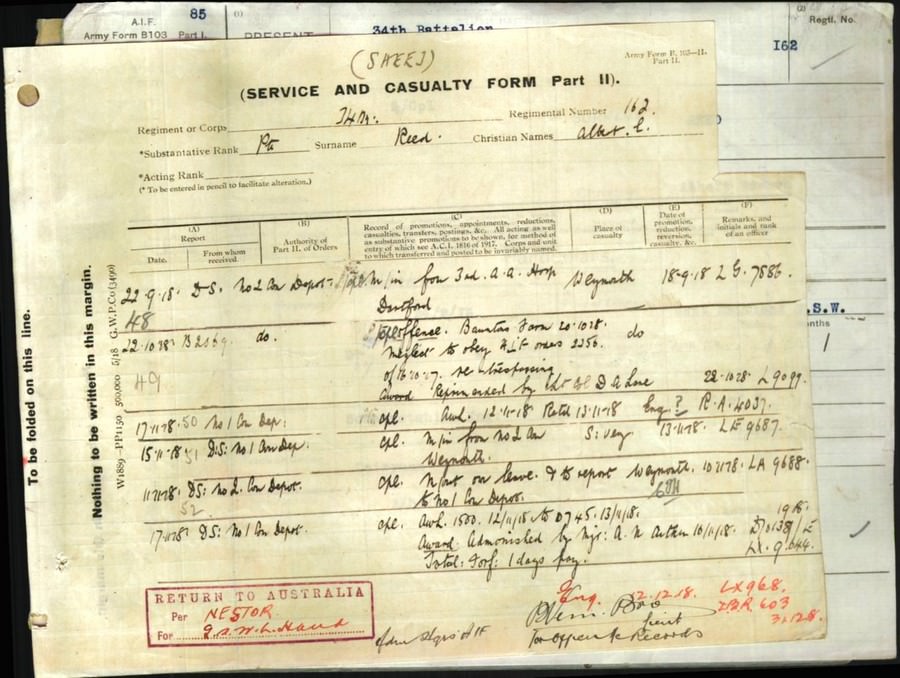 A.I.F. 85
Army Form B103 Part I.
34th Battalion
Regtl. No.
I62
PRESENT
(SHEET)
Army Form B. 103—II.
Part II.
(SERVICE AND CASUALTY FORM Part II).
Regiment or Corps 34 Bn. Regimental Number 162
*Substantive Rank Pte Surname Reed. Christian Names Albert E.
*Acting Rank
(* To be entered in pencil to facilitate alteration.)
(A) Report
Date. From whom received.
(B) Authority of Part II. of Orders
(C) Record of promotions, appointments, reductions, casualties, transfers, postings, &c. All acting as well as substantive promotions to be shown, for method of entry of which see A.C.I. 1816 of 1917. Corps and unit to which transferred and posted to be invariably named.
(D) Place of casualty
(E) Date of promotion, reduction, reversion, casualty, &c.
(F) Remarks, and initials and rank of an officer
22-9-18. DS. No 2 Con Depot. M/in from 3rd. A.A. Hosp Weymouth 18-9-18 LG. 7886.
48 Dartford
22-10-18 B2569. do. offence. Farm 20-10-18. do
neglect to obey AIF order 2256.
49 of
award Reprimanded by 22-10-18 L9099.
17-11-18 50 No 1 Con Dep: cpl. Awl. 12-11-18 Retd 13-11-18 Eng. ? R.A. 4037.
15-11-18 51 DS: No 1 Con Dep: cpl. M/in from No 2 Con S: 13-11-18. LE 9687.
Weymouth.
11-11-18. DS: No 2. Con Depot. cpl. M/out on leave. & to report Weymouth. 10-11-18. LA 9688.
52. to No 1 Con Depot.
17-11-18 DS: No 1 Con Depot. cpl. Awl. 1500. 12/11/18 to 0745. 13/11/18. 1918.
Award: Admonished by Mjr: A. N.
Total: Forf: 1 days pay. LX. 9.044.
RETURN TO AUSTRALIA
Per NESTOR
For
Eng. 12.12.18. LX968.
603
Lieut 3.12.8.
for Officer i/c Records
AIF
To be folded on this line.
Nothing to be written in this margin.
W1889—PP1150 500,000 5/18 G.W.P.Co (3490)
.S.W.
nths
1